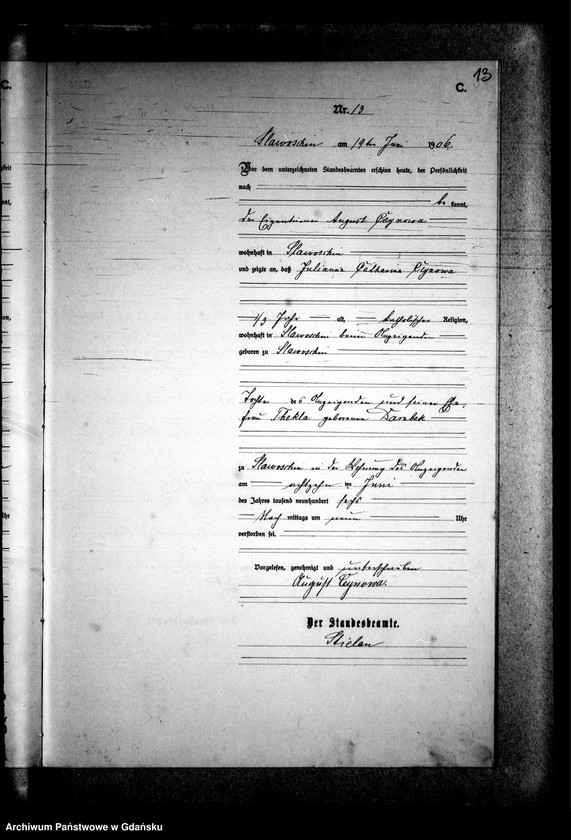 13
C.
C.
Nr. 13
Slawoschin am 19ten Juni 1906.
Vor dem unterzeichneten Standesbeamten erschien heute, der Persönlichkeit
nach
be kannt,
der Eigentümer August Ceynowa
wohnhaft in Slawoschin
und zeigte an, daß Julianna Catharina Ceynowa
1/3 Jahr alt, katholischer Religion,
wohnhaft in Slawoschin beim Anzeigenden
geboren zu Slawoschin
Tochter des Anzeigenden und seiner Ehe-
frau Thekla geborenen
zu Slawoschin in der Wohnung des Anzeigenden
am achtzehn ten Juni
des Jahres tausend neunhundert sechs
Nach mittags um neun Uhr
verstorben sei.
Vorgelesen, genehmigt und unterschrieben
August Ceynowa.
Der Standesbeamte.
Archiwum Państwowe w Gdańsku